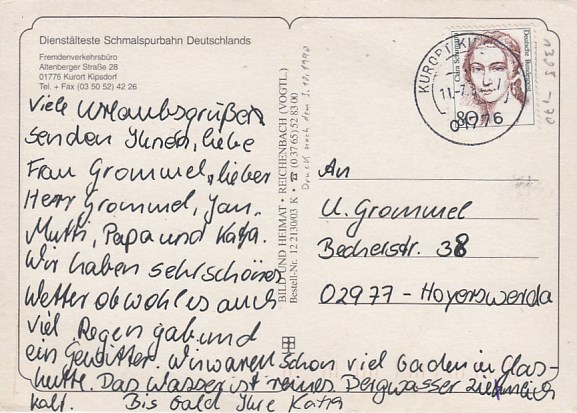 Dienstälteste Schmalspurbahn Deutschlands
Fremdenverkehrsbüro
Altenberger Straße 28
01776 Kurort Kipsdorf
Tel. + Fax (03 50 52) 42 26
Viele Urlaubsgrüße
senden Ihnen, liebe
Frau Grommel, lieber
Herr Grommel, Jan,
Mutti, Papa und Katja.
Wir haben sehr schönes
Wetter obwohl es auch
viel Regen gab und
ein Gewitter. Wir waren schon viel baden in Glas-
hütte. Das Wasser ist reines Bergwasser ziemlich
kalt. Bis bald Ihre Katja
BILD UND HEIMAT • REICHENBACH (VOGTL.)
Bestell-Nr. 12 2130/03 K • ☎ (0 37 65) 52 83 00
Druck nach dem 3.10.1990
KURORT KIP
11.-7.
01776
Clara Schumann
Deutsche Bundespost
80
An
U. Grommel
Becherstr. 38
02977 - Hoyerswerda